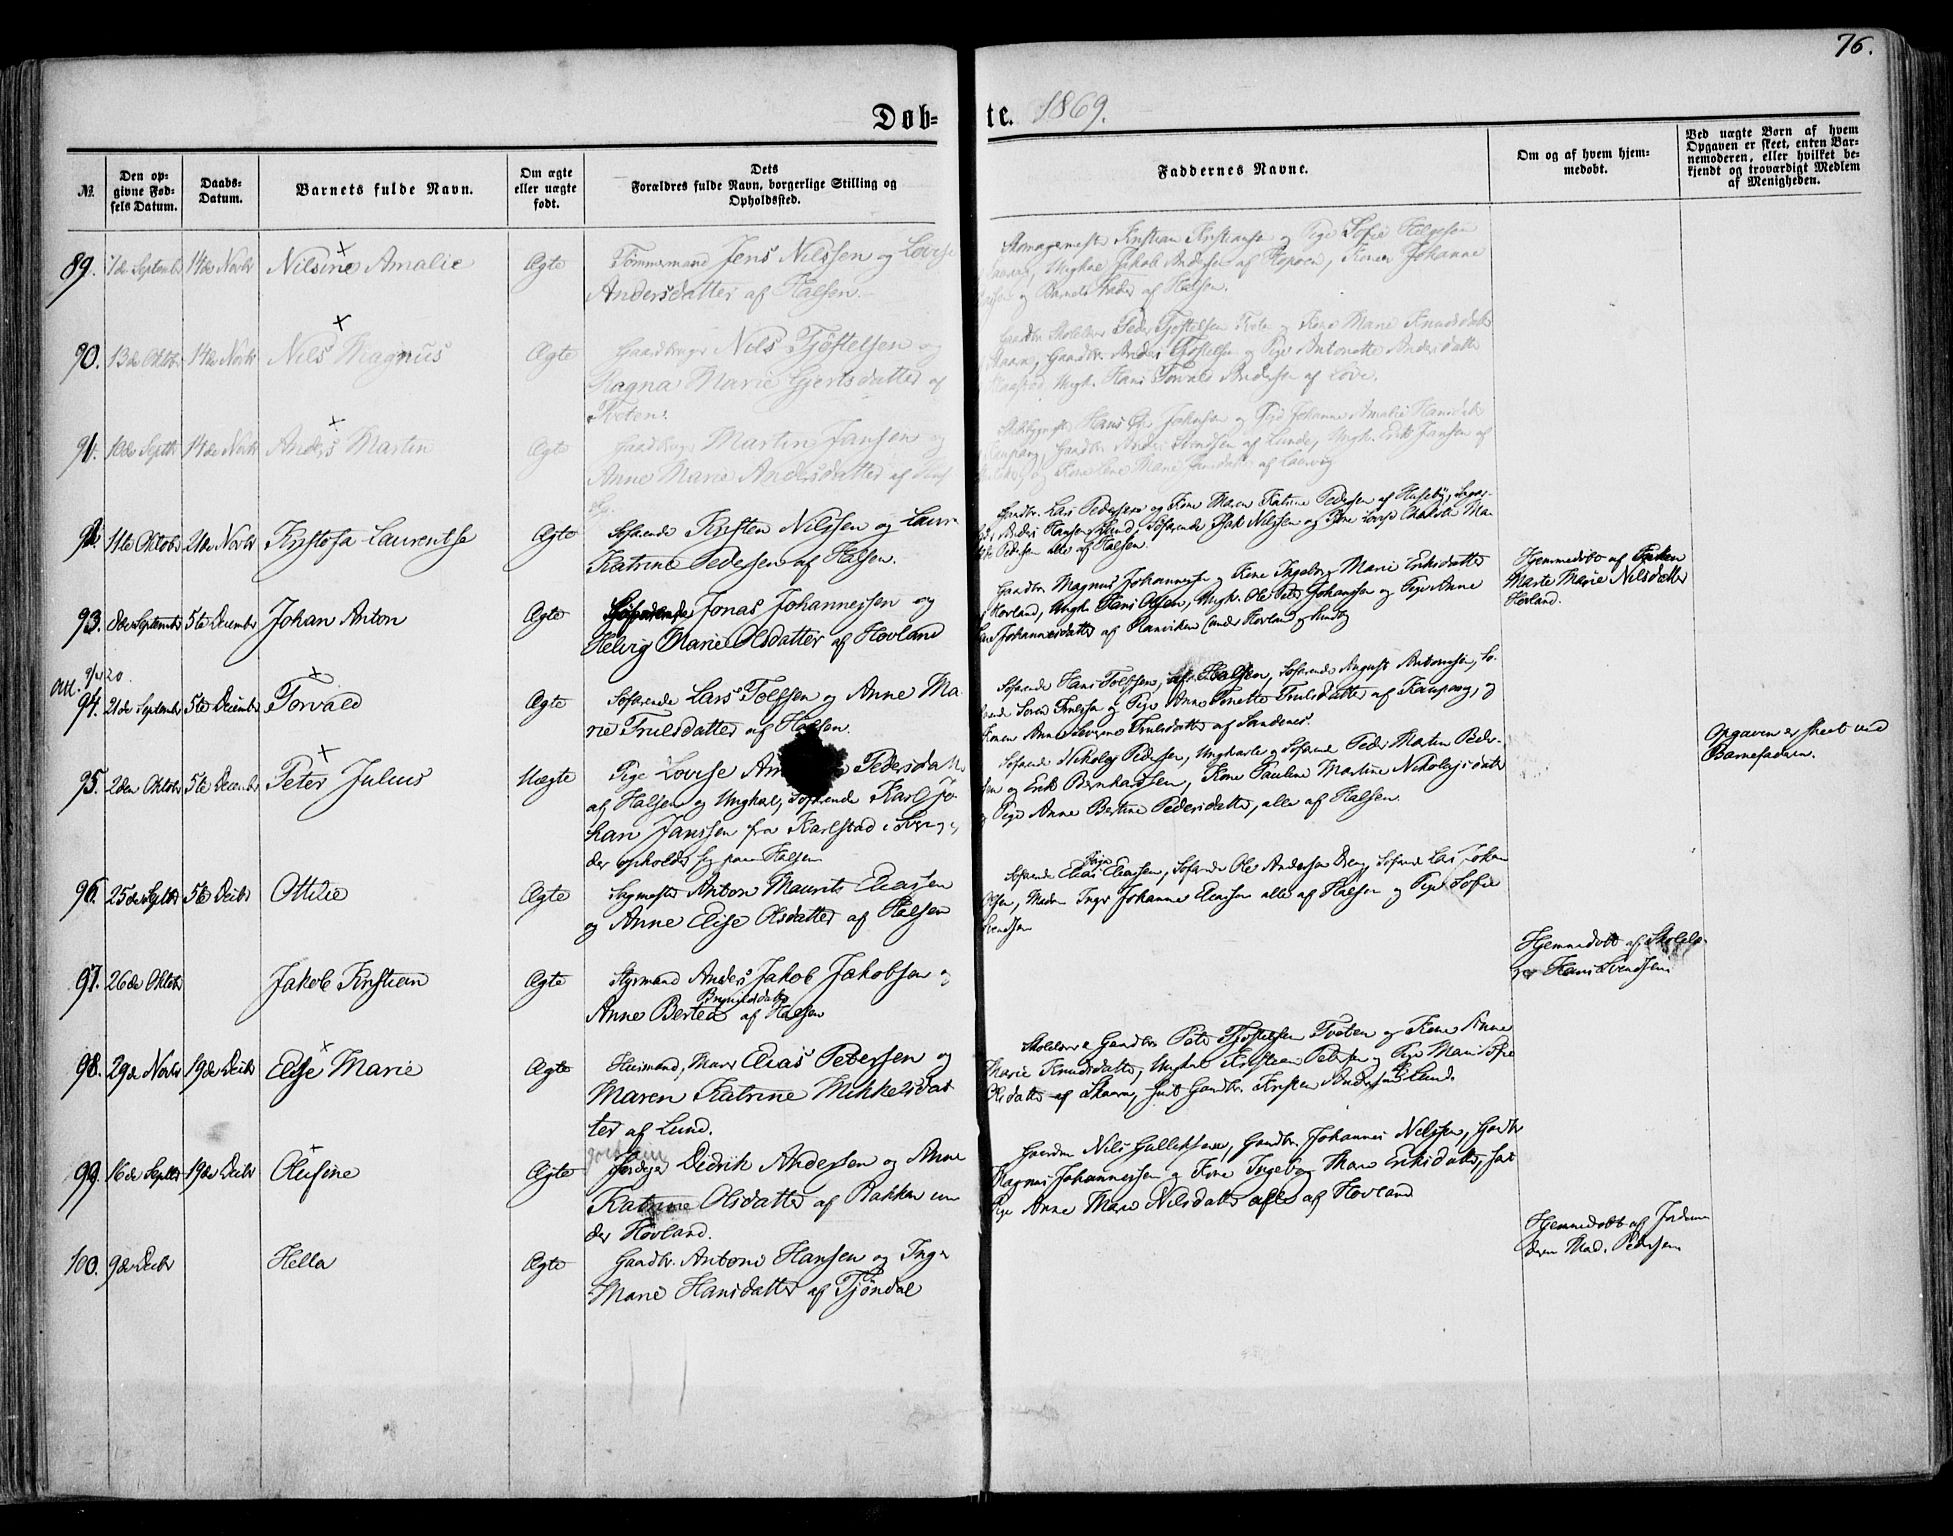 76.
Døb=
te. 1869.
№.
Den op=
givne Fød=
sels Datum.
Daabs=
Datum.
Barnets fulde Navn.
Om ægte
eller uægte
født.
Dets
Forældres fulde Navn, borgerlige Stilling og
Opholdssted.
Faddernes Navne.
Om og af hvem hjem=
medøbt.
Ved uægte Børn af hvem
Opgaven er skeet, enten Bar=
nemoderen, eller hvilket be=
kjendt og troværdigt Medlem
af Menigheden.
89. 7de Septembr 14de Novbr Nilsine Amalie Ægte Tømmermand Jens Nilssen og Lovise
Andersdatter af Halsen.
Kristian Kristiansen og Pige Sofie Helgesen
Ungkal Jakob Andersen af Konen Johanne
og Barnets Fader af Halsen.
90. 13de Oktobr 14de Novbr Nils Magnus Ægte Gaardbruger Nils Tjøstelsen og
Ragna Marie Gjertsdatter af
Tveten.
Gaardbr. Skolelærer Peder Tjøstelsen Tveten og Kone Marie Knudsdatter
Skaane, Gaardbr. Anders Tjøstelsen og Pige Antonette Andersdatter
Ungk. Hans Torvald Andersen af Løve.
91. 10de Septbr 14de Novbr Anders Martin Ægte Gaardbruger Martin Jansen og
Anne Marie Andersdatter af
Hans Chr. Jakobsen og Pige Johanne Amalie Hansdatter
Kaupang, Gaardbr. Anders Svendsen af Lunde, Ungk. Erik Jansen af
og Kone Lene Marie af Laurvig
92. 11te Oktobr 21de Novbr Krystofa Laurentse Ægte Søfarende Kristen Nilssen og Laura
Katrine Pedersen af Halsen.
Gaardbr. Lars Pederssen og Kone Maren Katrine Pedersen af Huseby,
Anders Hansen Lund, Søfarende Isak Nilssen og Pige Lovise Charlotte Ma-
Pedersen alle af Halsen.
93. 8de Septembr 5te Decembr Johan Anton Ægte Søfarende Jonas Johannessen og
Helvig Marie Olsdatter af Hovland
Gaardbr. Magnus Johannessen og Kone Ingeborg Marie Eriksdatter
Hovland, Ungk. Hans Olsen, Ungk. Ole Peter Johansen og Pige Anne
Johannesdatter af Ranviken under Hovland og Lund
Hjemmedøbt af Pigen
Marte Marie Nilsdatter
Hovland.
Att. 9/4 20.
94. 21de Septembr 5te Decembr Torvald Ægte Søfarende Lars Tolfsen og Anne Ma-
rie Trulsdatter af Halsen.
Søfarende Hans Tolfsen, af Halsen, Søfarende August Antonsen, Sø-
farende Søren Trulssen og Pige Anne Tonette Trulsdatter af Kaupang, og
Konen Anne Severine Trulsdatter af Sandenes.
95. 2den Oktobr 5te Decembr Peter Julius Uægte Pige Lovise Pedersdatter
af Halsen og Ungkal, Søfarende Karl Jo-
han Janssen fra Karlstad i Sverige,
der opholder sig paa Halsen
Søfarende Nikolay Pedersen, Ungkarle og Søfarende Peder Martin Peder-
sen og Erik Bernhardsen, Kone Pauline Martine Nikolaysdatter
og Pige Anne Bertine Pedersdatter, alle af Halsen.
Opgaven er skeet ved
Barnefaderen.
96. 25de Septbr 5te Decbr Ottilie Ægte Sagmester Anton Maurits Eliassen
og Anne Elise Olsdatter af Halsen
Søfarende Elias Eliassen, Søfarende Ole Andersen Deng, Søfarende Lars Johan
Olsen, Madm Inger Johanne Eliassen alle af Halsen og Pige Sofie
Svendsen
97. 26de Oktobr Jakob Kristian Ægte Styrmand Anders Jakob Jakobsen og
Anne Bertea Brynildsdatter af Halsen
Hjemmedøbt af Skolelæ-
rer Hans Svendsen
98. 29de Novbr 19de Decbr Elise Marie Ægte Huusmand, Murer Elias Petersen og
Maren Katrine Mikkelsdat-
ter af Lund.
Skolelærer & Gaardbr. Peter Tjøstelsen Tveten og Kone Anne
Marie Knudsdatter, Ungkal Kristian Petersen og Pige Maren Sofie
Olsdatter af Skaane, samt Gaardbr. Kristen Andersen Lund.
99. 16de Septbr 19de Decbr Olufine Ægte Jordejer Didrik Andersen og Anne
Katrine Olsdatter af Bakken un-
der Hovland.
Gaardm. Nils Gulliksen, Gaardbr. Johannes Nelssen, Gaardbr
Magnus Johannessen og Kone Ingeborg Marie Eriksdatter, samt
Pige Anne Marie Nilsdatter alle af Hovland
100. 9de Decbr Hella Ægte Gaardbr. Antoni Hansen og Inger
Marie Hansdatter af Tjøndal
Hjemmedøbt af Jordemo-
deren Mad. Pedersen